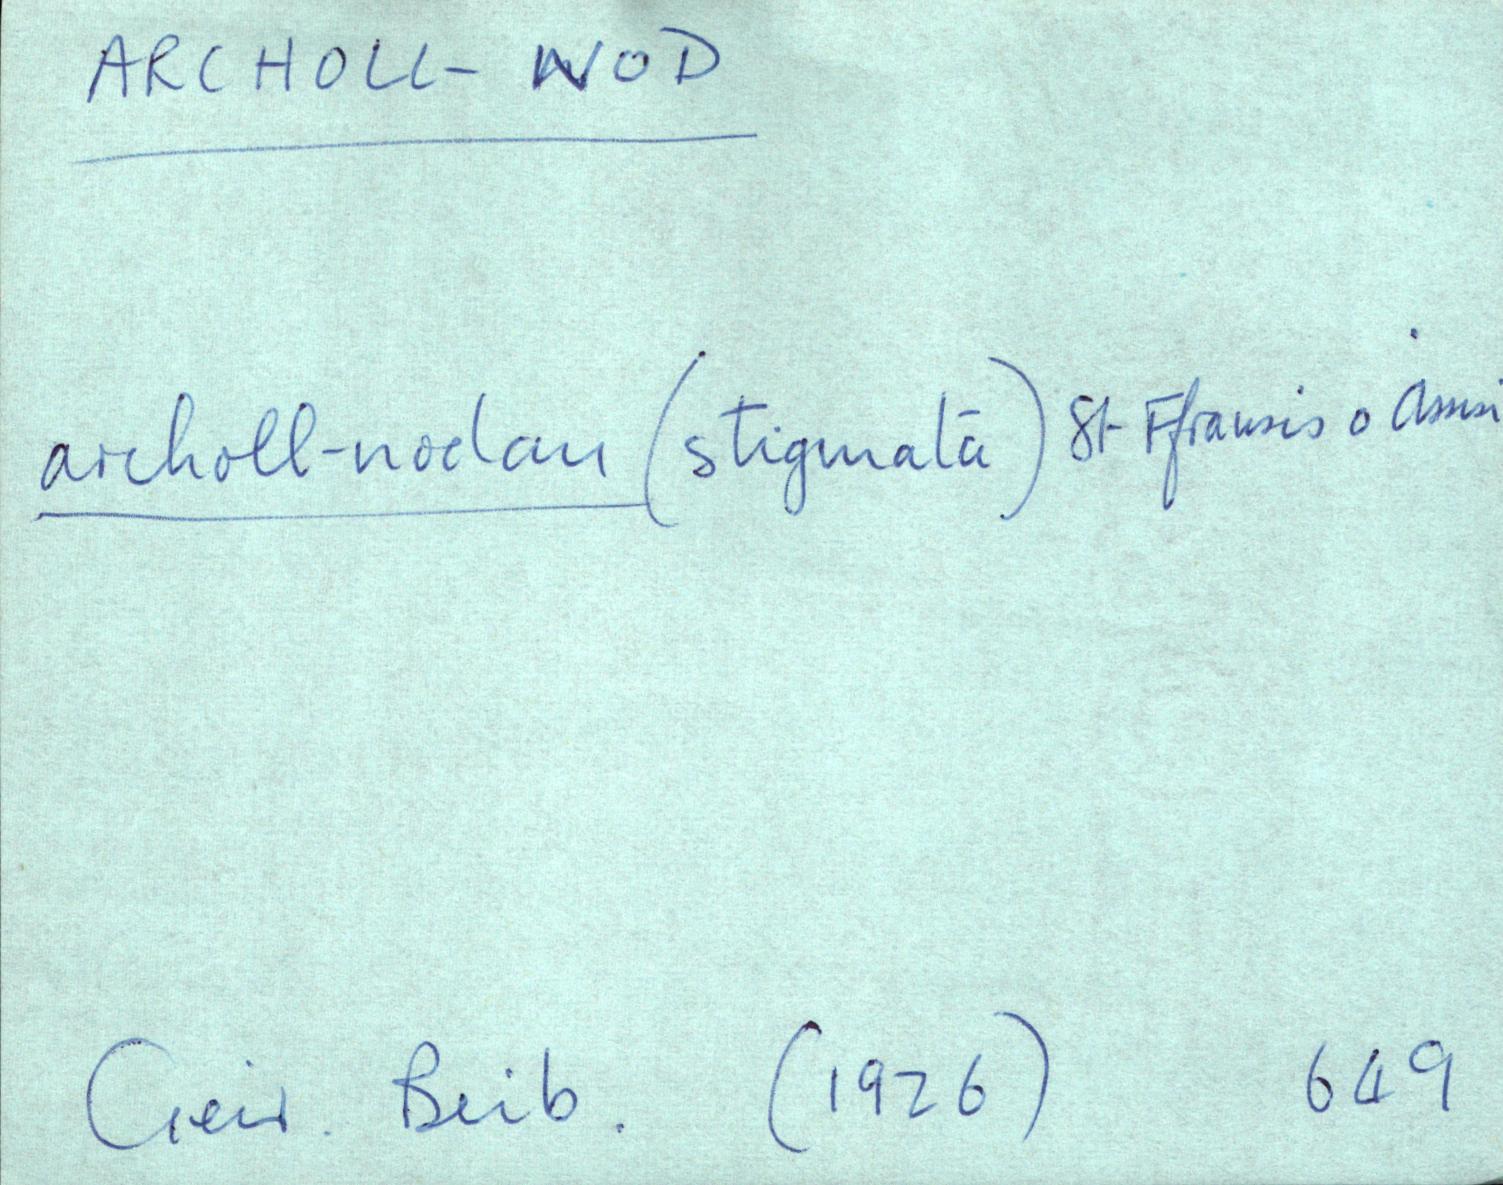 ARCHOLL-NOD
archoll-nodau (stigmata) St Ffransis o Assisi
Geir. Beib. (1926) 649